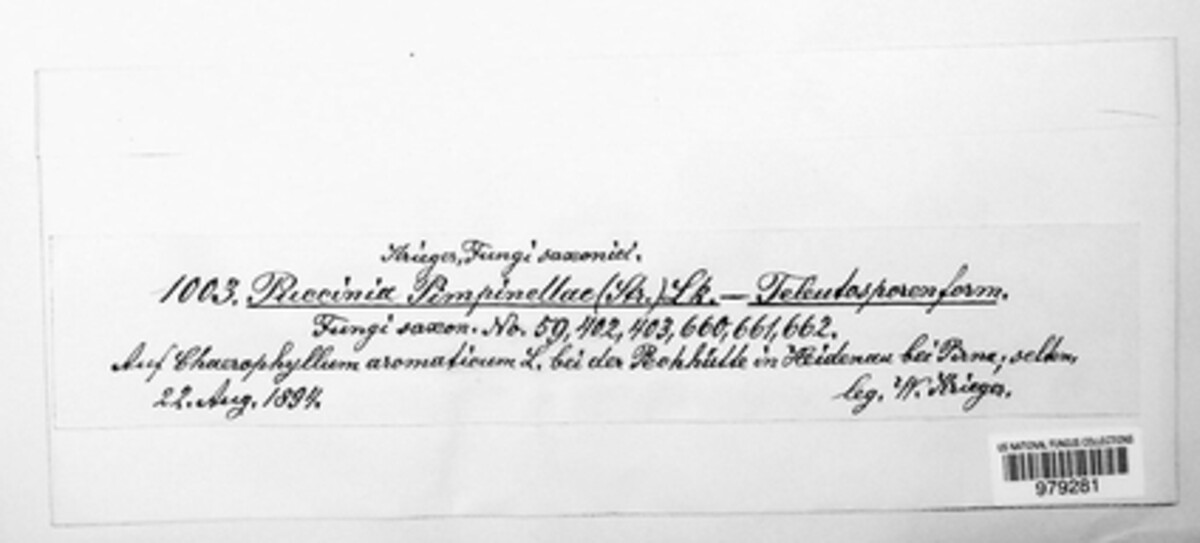 Krieger, Fungi saxonici.
1003. Puccinia Pimpinellae (Str.) Lk. — Teleutosporenform.
Fungi saxon. No. 59, 402, 403, 660, 661, 662.
Auf Chaerophyllum aromaticum L. bei der in Heidenau bei Pirna, selten,
22. Aug. 1894. leg. W. Krieger.
US NATIONAL FUNGUS COLLECTIONS
979281